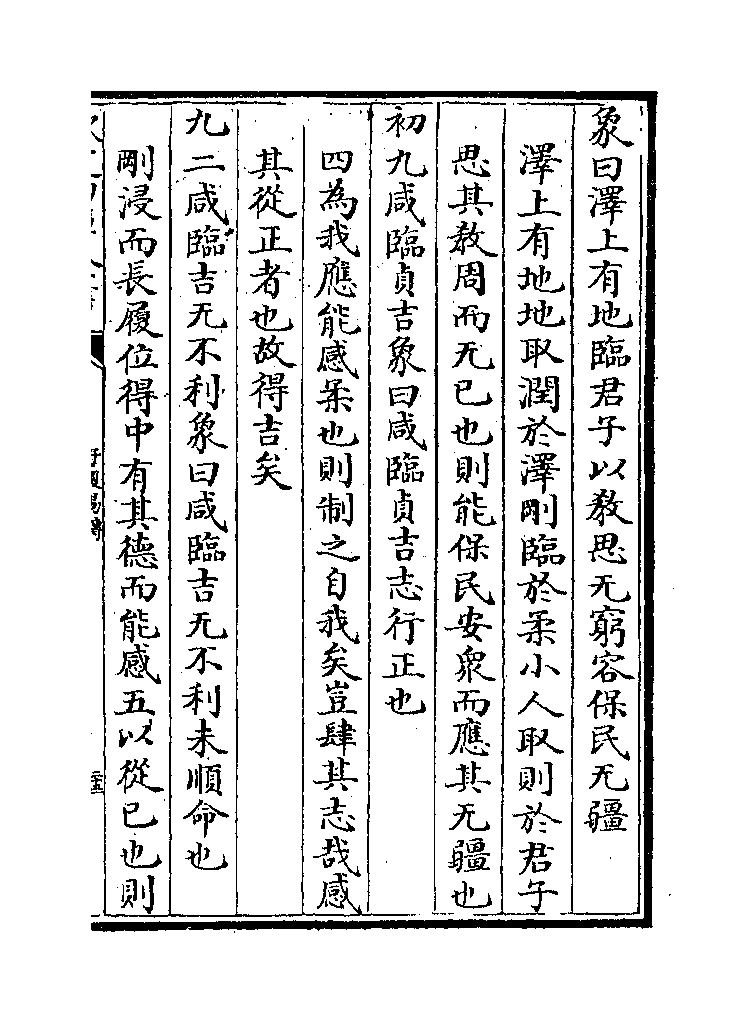 象曰澤上有地臨君子以教思无窮容保民无疆
澤上有地地取潤於澤剛臨於柔小人取則於君子
思其教周而无已也則能保民安衆而應其无疆也
初九咸臨貞吉象曰咸臨貞吉志行正也
四為我應能感柔也則制之自我矣豈肆其志哉感
其從正者也故得吉矣
九二咸臨吉无不利象曰咸臨吉无不利未順命也
剛浸而長履位得中有其德而能感五以從已也則